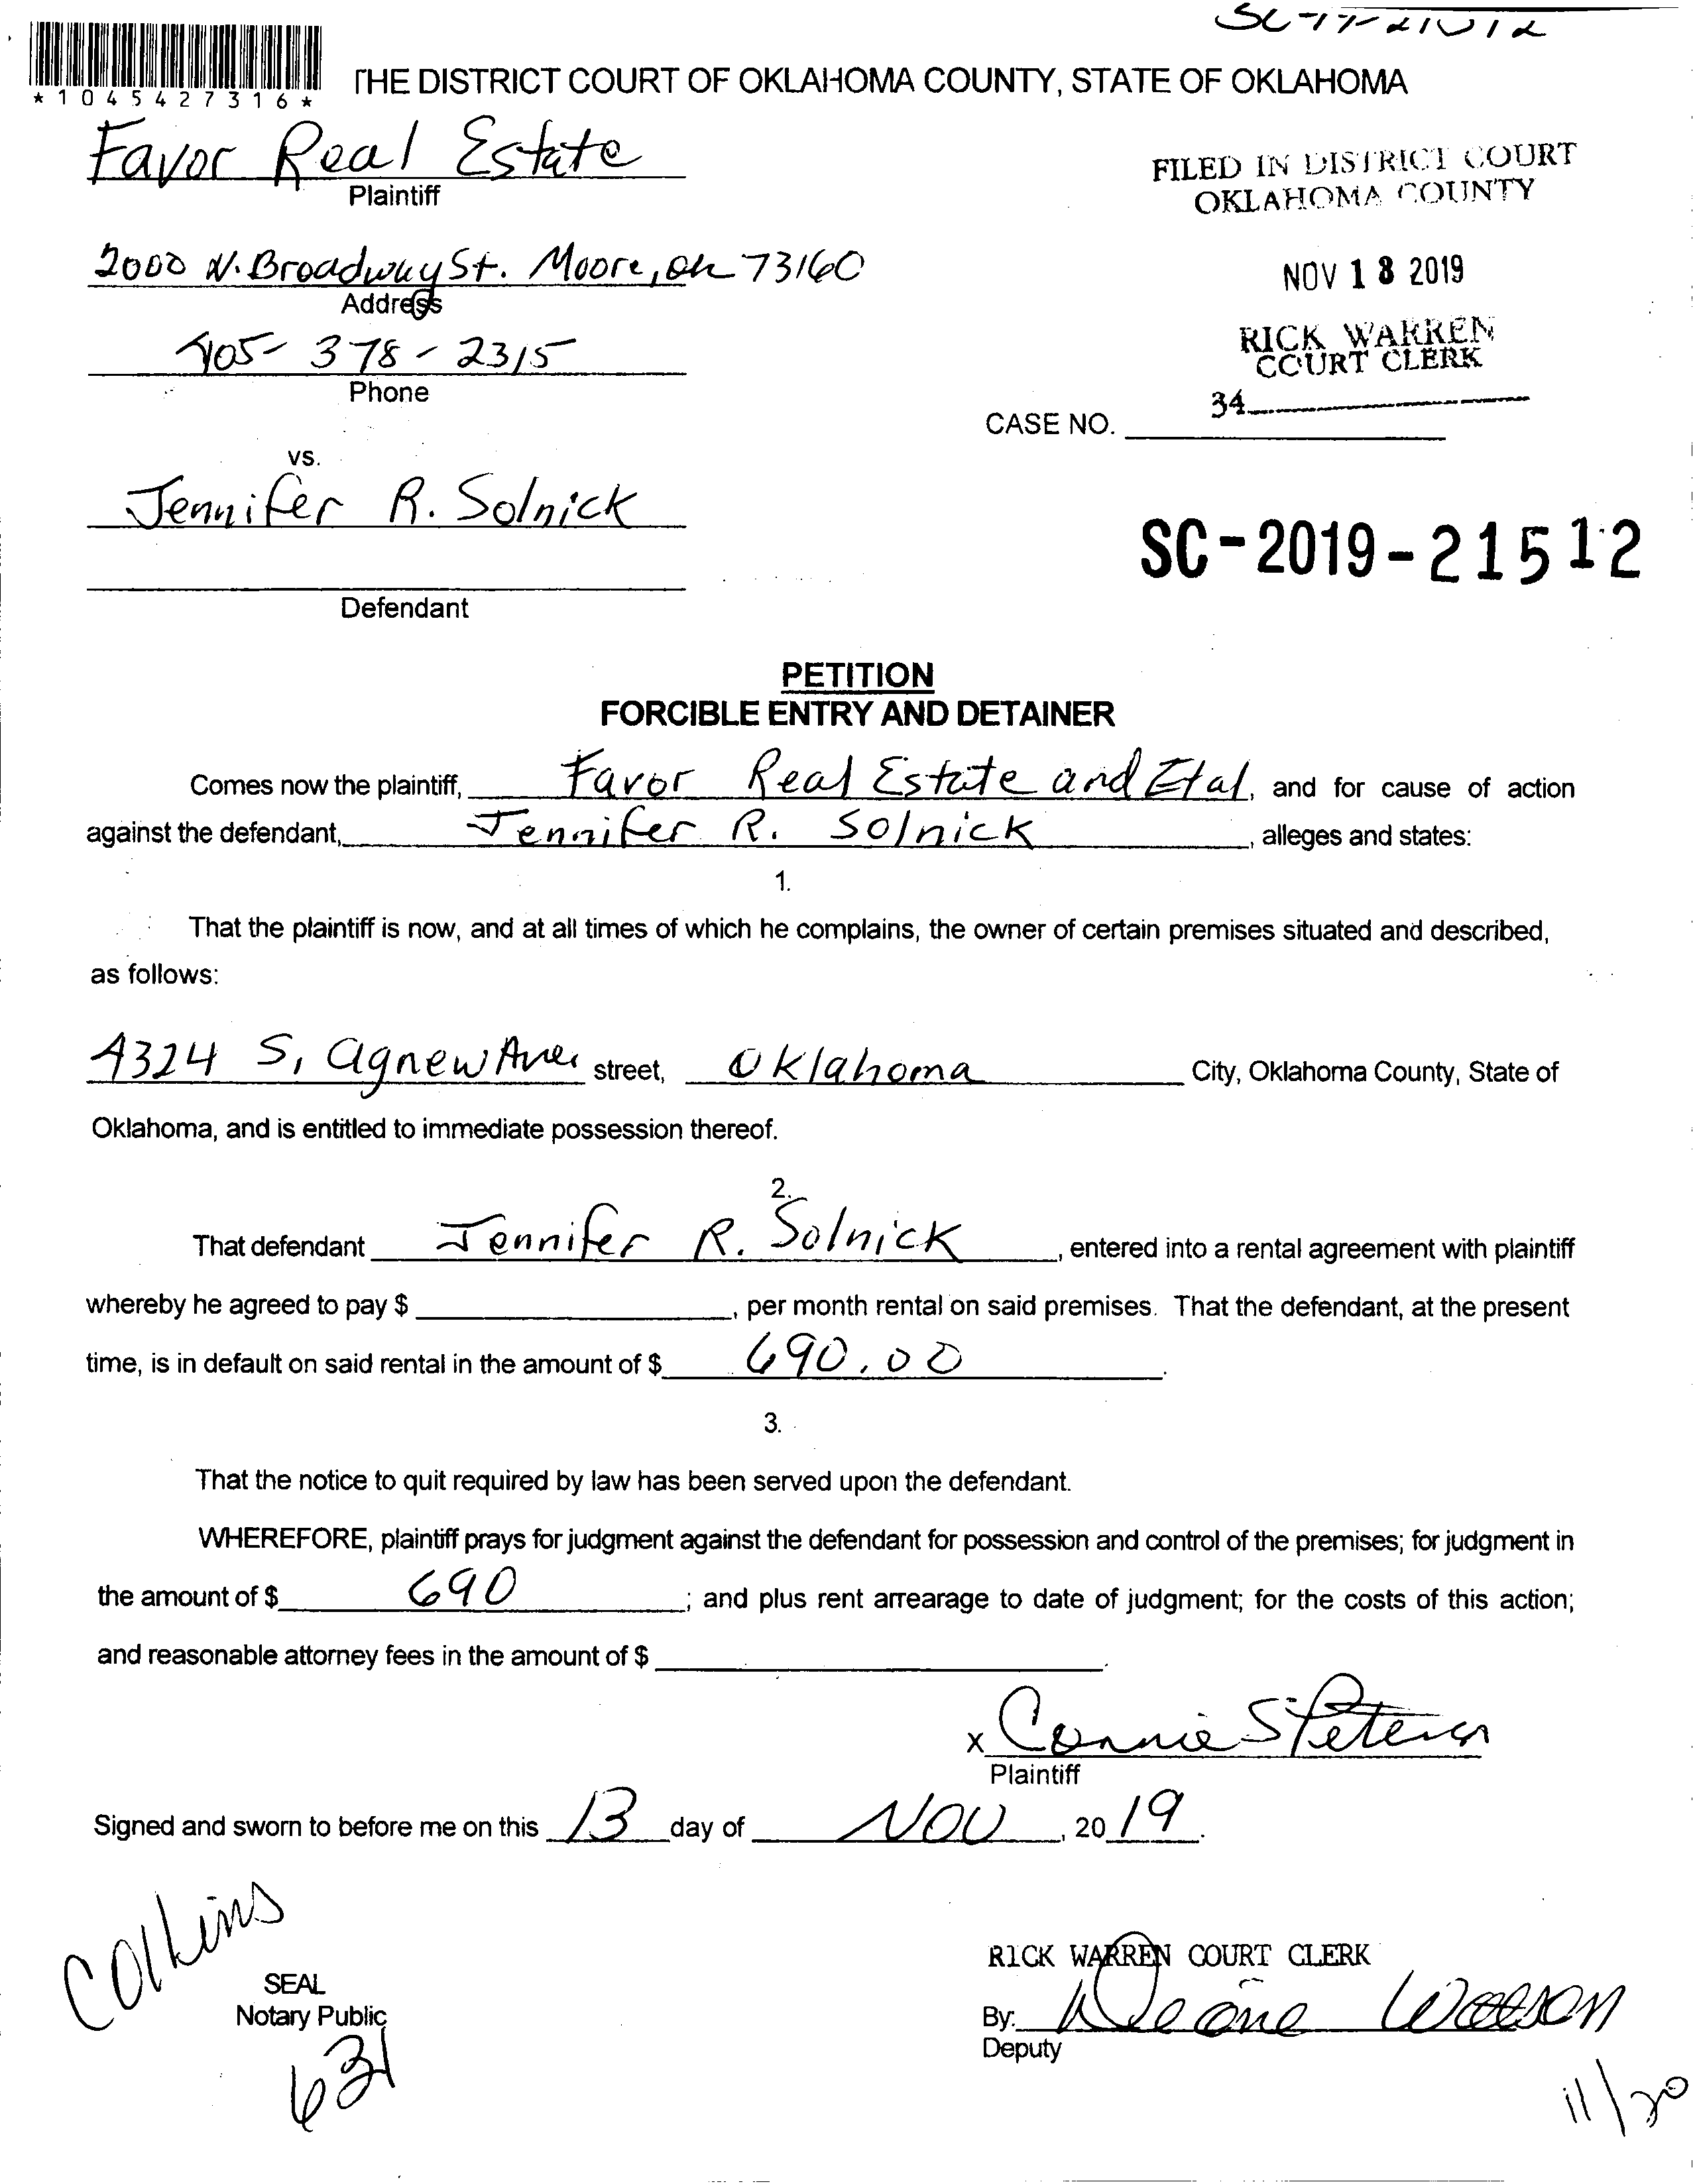 *1045427316*
THE DISTRICT COURT OF OKLAHOMA COUNTY, STATE OF OKLAHOMA
Favor Real Estate
Plaintiff
FILED IN DISTRICT COURT
OKLAHOMA COUNTY
2000 N. Broadway St. Moore, OK 73160
Address
NOV 18 2019
405-378-2315
Phone
RICK WARREN
COURT CLERK
34
CASE NO.
vs.
Jennifer R. Solnick
SC-2019-21512
Defendant
PETITION
FORCIBLE ENTRY AND DETAINER
Comes now the plaintiff, Favor Real Estate and Etal, and for cause of action
against the defendant, Jennifer R. Solnick, alleges and states:
1.
That the plaintiff is now, and at all times of which he complains, the owner of certain premises situated and described,
as follows:
4324 S, Agnew Ave. street, Oklahoma City, Oklahoma County, State of
Oklahoma, and is entitled to immediate possession thereof.
2.
That defendant Jennifer R. Solnick, entered into a rental agreement with plaintiff
whereby he agreed to pay $, per month rental on said premises. That the defendant, at the present
time, is in default on said rental in the amount of $ 690.00.
3.
That the notice to quit required by law has been served upon the defendant.
WHEREFORE, plaintiff prays for judgment against the defendant for possession and control of the premises; for judgment in
the amount of $ 690; and plus rent arrearage to date of judgment; for the costs of this action;
and reasonable attorney fees in the amount of $.
x Connie S Peterson
Plaintiff
Signed and sworn to before me on this 13 day of NOV, 2019.
RICK WARREN COURT CLERK
SEAL
Notary Public
By: Watson
Deputy
631
11/20